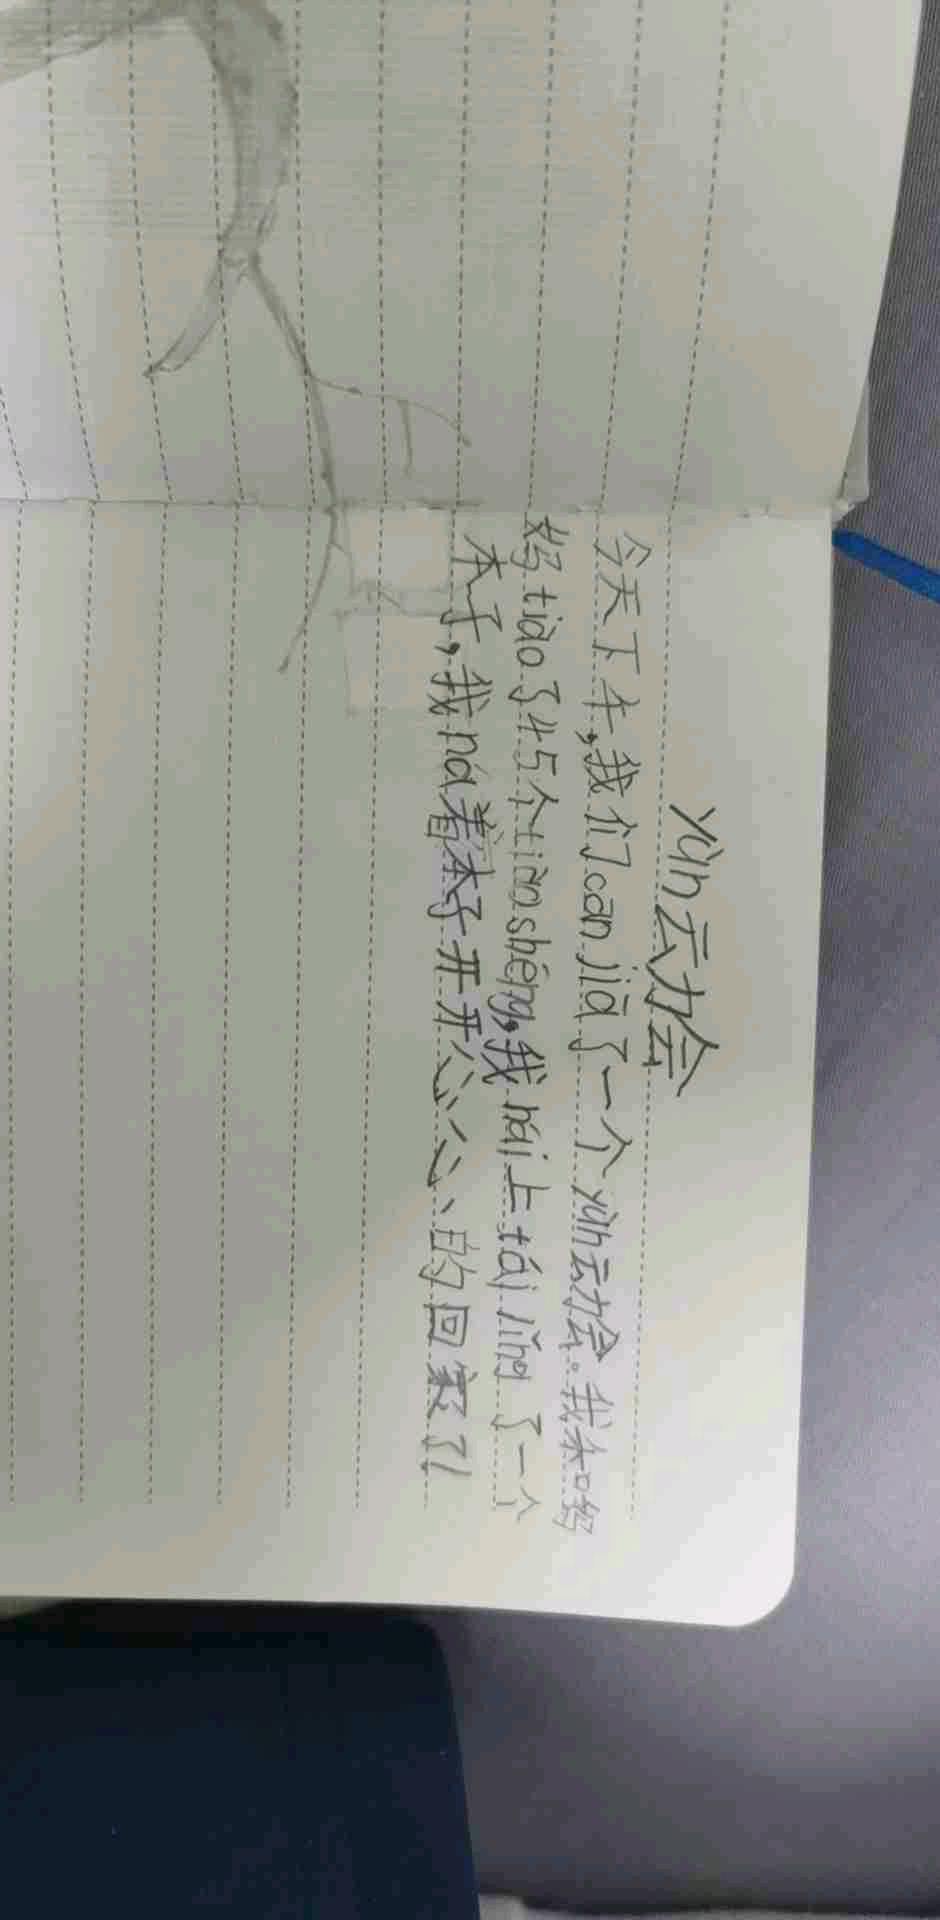 yùn动会
今天下午,我们cān jiā了一个yùn动会。我和妈
妈tiào了45个tiào shéng,我hái上tái lǐng了一个
本子,我ná着本子开开心心的回家了!